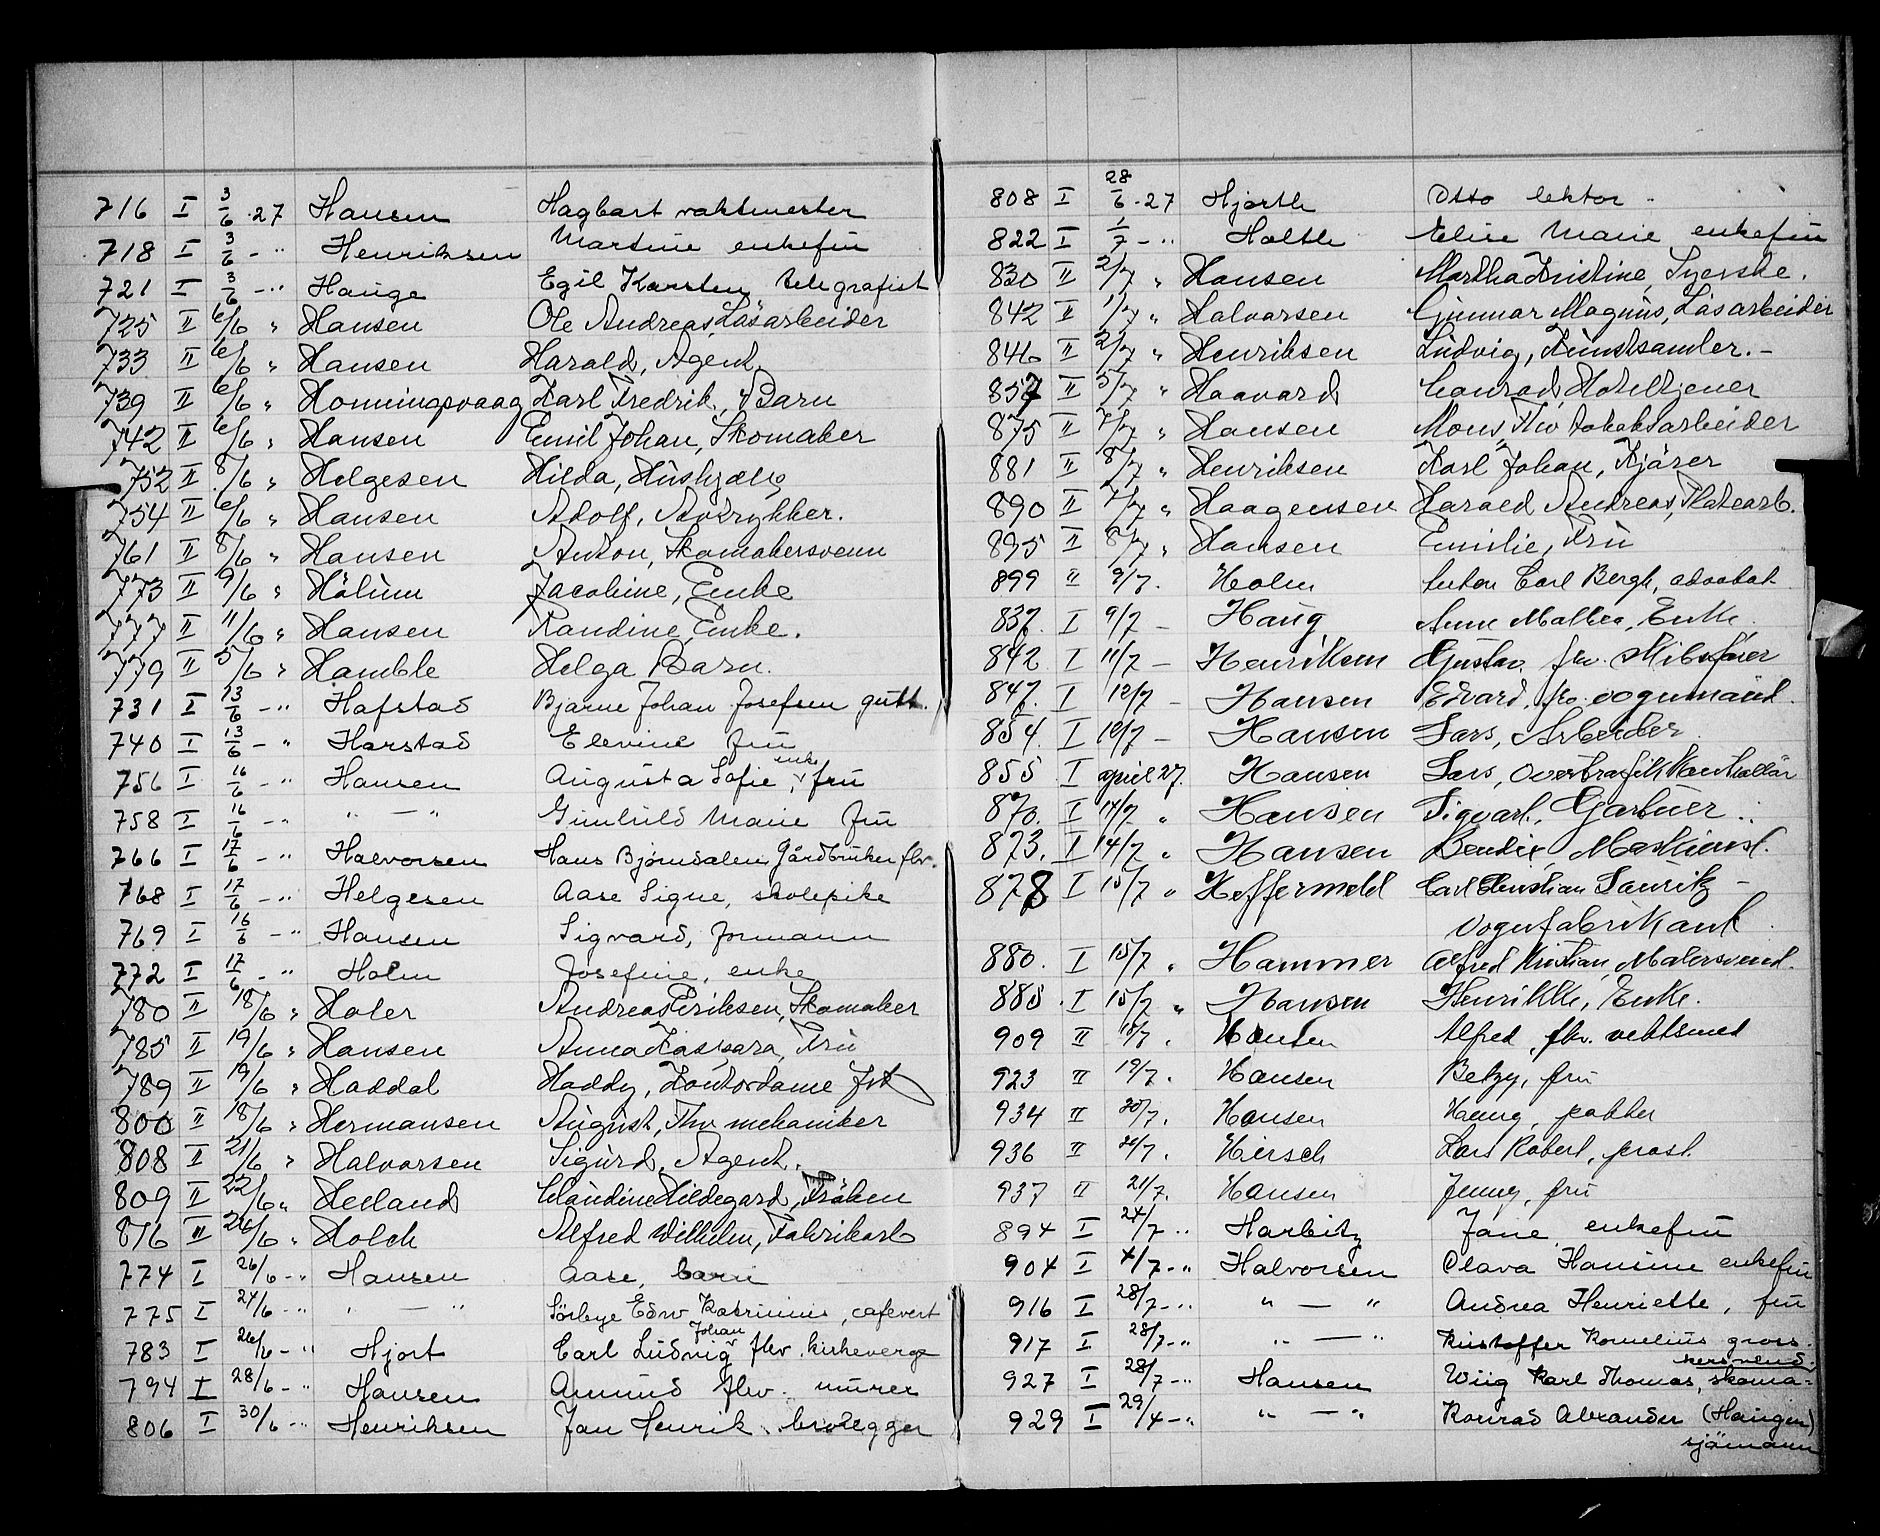 716 I 3/6 . 27 Hansen Hagbart vaktmester
718 I 3/6 - " Henriksen Martine enkefru
721 I 3/6 - " Hauge Egil Karsten telegrafist
725 II 6/6 " Hansen Ole Andreas, Løsarbeider
733 II 6/6 " Hansen Harald, Agent
739 II 6/6 " Honningsvaag Karl Fredrik, Barn
742 II 6/6 " Hansen Emil Johan, Skomaker
752 II 8/6 " Helgesen Hilda, Hushjælp
754 II 6/6 " Hansen Adolf, Avtrykker.
761 II 8/6 " Hansen Anton, Skomakersvenn
773 II 9/6 " Hölum Jacobine, Enke
777 II 11/6 " Hansen Randine, Enke.
779 II 5/6 " Hamble Helga Barn.
731 I 13/6 - " Hafstad Bjarne Johan Josefsen gutt.
740 I 13/6 - " Harstad Elevine fru
756 I 16/6 - " Hansen Augusta Sofie, enke fru
758 I 16/6 - " " — " Gunhild Marie fru
766 I 17/6 - " Halvorsen Hans Bjørndalen Gårdbruker fhv.
768 I 17/6 - " Helgesen Aase Signe, skolepike
769 I 16/6 - " Hansen Sigvard, formann
772 I 17/6 - " Holm Josefine, enke
780 II 18/6 " Holer Andreas Eriksen, Skomaker
785 II 19/6 " Hansen Anna Kaspara, Fru
789 II 19/6 " Haddal Haddy, Kontordame frk
800 II 18/6 " Hermansen August, Fhv mekaniker
808 II 21/6 " Halvorsen Sigurd, Agent.
809 II 22/6 " Helland Claudine Hildegard, Frøken
816 II 24/6 " Holck Alfred Wilhelm, Fabrikarb
774 I 26/6 - " Hansen Aase, barn
775 I 24/6 - " " — " Sørbye Edw Katrinius, cafevert
783 I 26/6 - " Hjort Carl Ludvig Johan fhv. kirkeverge
794 I 28/6 - " Hansen Amund fhv. murer
806 I 30/6 - " Henriksen Jan Henrik brolegger
808 I 28/6 . 27 Hjorth Otto lektor -
822 I 1/7 - " Holth Elise Marie enkefru
830 II 2/7 " Hansen Martha Kristine, Syerske.
842 II 1/7 " Halvorsen Gunnar Magnus, Løsarbeider
846 II 2/7 " Henriksen Ludvig, Kunstsamler. -
857 II 5/7 " Haavard Conrad, Hoteltjener
875 II 7/7 " Hansen Mons, Fhv tobaksarbeider
881 II 8/7 " Henriksen Karl Johan, Kjører
890 II 7/7 " Haagensen Harald Andreas, Platearb.
895 II 8/7 " Hansen Emilie, Fru
899 II 9/7. Holm Anton Carl Bergh, advokat
837. I 9/7 - Haug Anne Mathea, Enke.
842 I 11/7 - Henriksen Gustav fhv. skibsfører
847. I 12/7 - Hansen Edvard, fhv. vognmand.
854. I 12/7 - Hansen Lars, Arbeider.
855. I april 27. Hansen Lars, Overtrafikkontrollør
870. I 14/7 " Hansen Sigvart, Gartner.
873. I 14/7 " Hansen Bendix, Maskinist.
878 I 15/7 " Heffermehl Carl Christian Lauritz -
Vognfabrikant
880. I 15/7 " Hammer Alfred Kristian, Malersvend.
885. I 15/7 " Hansen Henrikke, Enke.
909 II 18/7. Hansen Alfred, fhv. vektsmed
923 II 19/7. Hansen Betzy, fru
934 II 20/7. Hansen Henry, pakker
936 II 20/7. Hirsch Lars Robert, prost
937 II 21/7. Hansen Jenny, fru
894 I 24/7 " Harbitz Janie, enkefru
904 I 4/7 - " Halvorsen Olava Hansine enkefru
916 I 28/7 - " " — " Andrea Henriette, fru
917 I 28/7 - " " — " Kristoffer Kornelius gross-
927 I 28/7 - " Hansen Wiig Karl Thomas, skoma-
kersvend.
929 I 29/4 - " " — " Konrad Alexander (Haugen)
sjømann